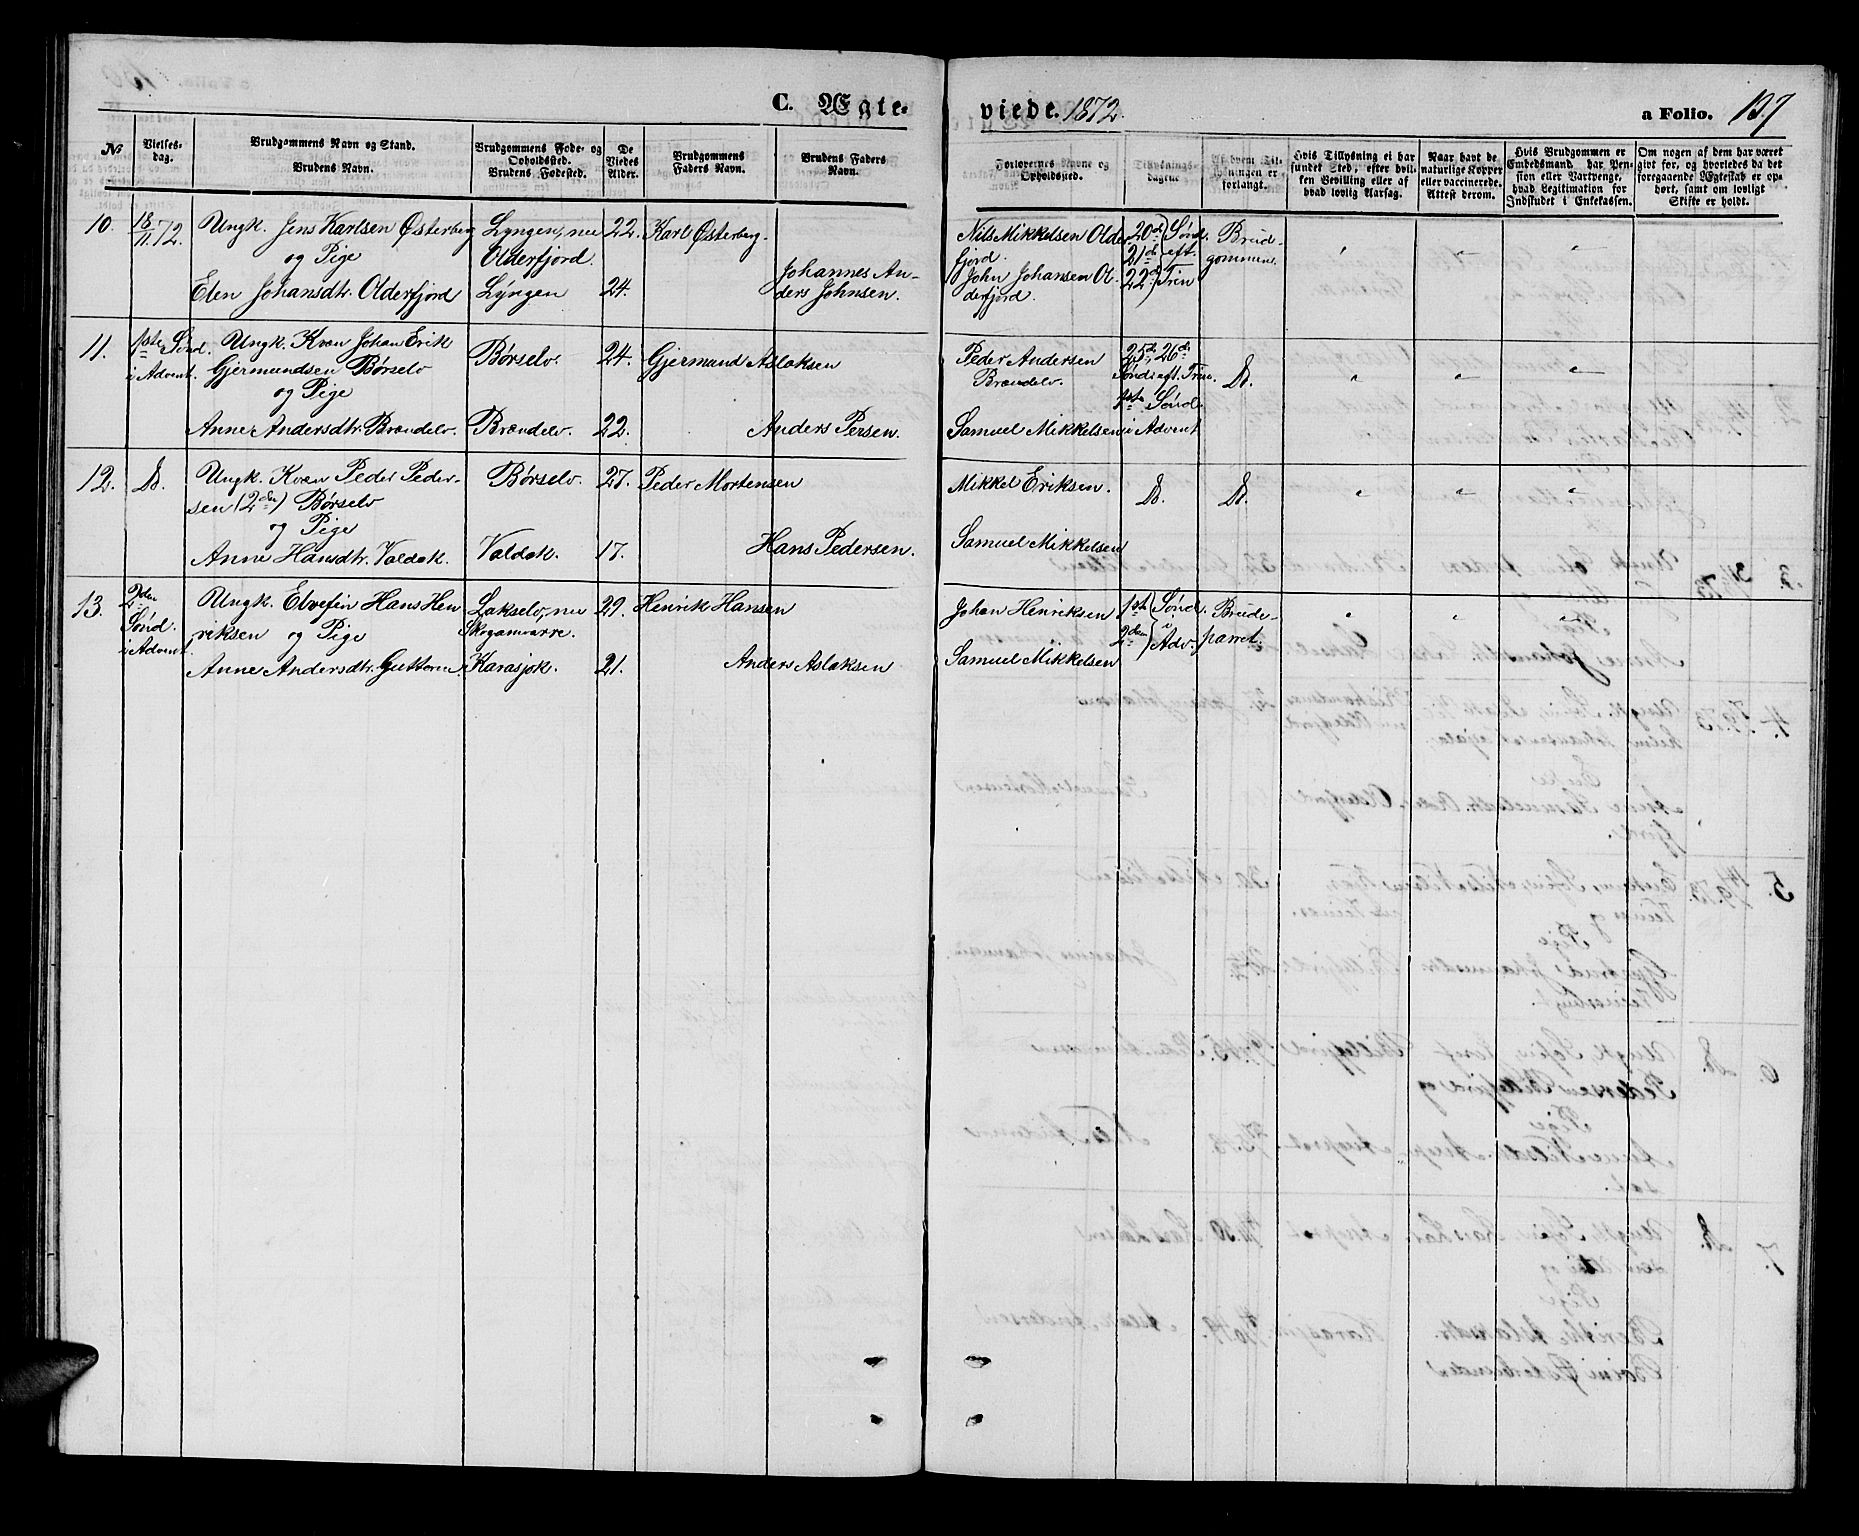 C. Ægte-
viede. 1872.
a Folio. 137
No
Vielses-
dag.
Brudgommens Navn og Stand.
Brudens Navn.
Brudgommens Føde- og
Opholdssted.
Brudens Fødested.
De
Viedes
Alder.
Brudgommens
Faders Navn.
Brudens Faders
Navn.
Forlovernes Navne og
Opholdssted.
Tillysnings-
dagene
Af hvem Til-
lysningen er
forlangt.
Hvis Tillysning ei har
fundet Sted, efter hvil-
ken Bevilling eller af
hvad lovlig Aarsag.
Naar havt de
naturlige Kopper
eller vaccinerede.
Attest derom.
Hvis Brudgommen er
Embedsmand, har Pen-
sion eller Vartpenge,
hvad Legitimation for
Indskudet i Enkekassen.
Om nogen af dem har været
givt før, og hvorledes da det
foregaaende Ægteskab er op-
hørt, samt om lovligt
Skifte er holdt.
10. 18/11.72. Ungk. Jens Karlsen Østerberg Lyngen, nu 22. Karl Østerberg. Nils Mikkelsen Older- 20de Sønd. Brud-
og Pige Olderfjord. fjord. 21de eft. gommen. " " "
Elen Johansdtr. Olderfjord Lyngen 24. Johannes An- John Johansen Ol- 22de Trin
ders Johnsen. derfjord.
11. 1ste Sønd. Ungk. Kvæn Johan Erik Børselv. 24. Gjermund Aslaksen Peder Andersen 25de, 26de
i Advent. Gjermundsen Børselv Brændelv. Sønd. eft. Trin. Do. " " "
og Pige 1ste Sønd.
Anne Andersdtr. Brændelv. Brændelv. 22. Anders Persen. Samuel Mikkelsen i Advent
12. Do. Ungk. Kvæn Peder Peder- Børselv 27. Peder Mortensen Mikkel Eriksen. Do. Do. " " "
sen (2den) Børselv
og Pige
Anne Hansdtr. Valdak. Valdak. 17. Hans Pedersen. Samuel Mikkelsen
13. 2den Ungk. Elvefin Hans Hen Lakselv, nu 29. Henrik Hansen Johan Henriksen 1ste Sønd. Brude- " " "
Sønd. riksen og Pige Skoganvarre. 2den i Adv. parret.
i Advent. Anne Andersdtr. Guttorm. Karasjok. 21. Anders Aslaksen Samuel Mikkelsen